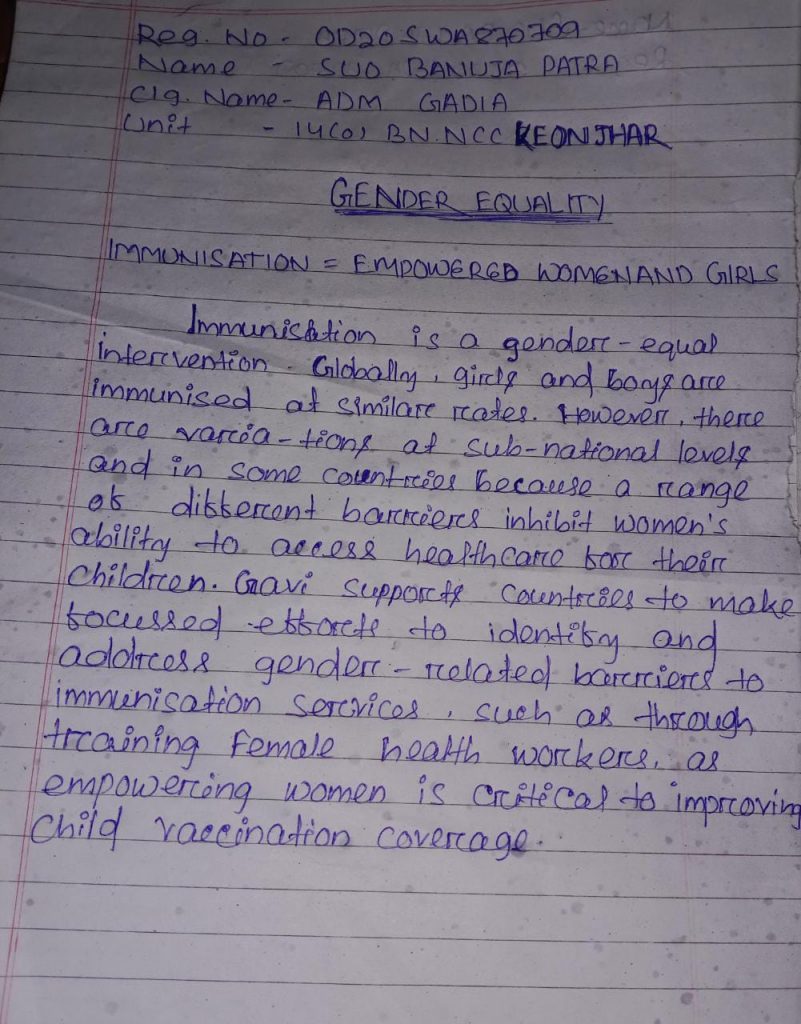 Reg. No - OD20SWA870709
Name - SUO BANUJA PATRA
Clg. Name - ADM GADIA
Unit - 14(O) BN. NCC KEONJHAR
GENDER EQUALITY
IMMUNISATION = EMPOWERED WOMEN AND GIRLS
Immunisation is a gender-equal
intervention. Globally, girls and boys are
immunised at similar rates. However, there
are varia-tions at sub-national levels
and in some countries because a range
of different barriers inhibit women's
ability to access healthcare for their
children. Gavi supports countries to make
focussed efforts to identify and
address gender-related barriers to
immunisation services, such as through
training female health workers, as
empowering women is critical to improving
child vaccination coverage.